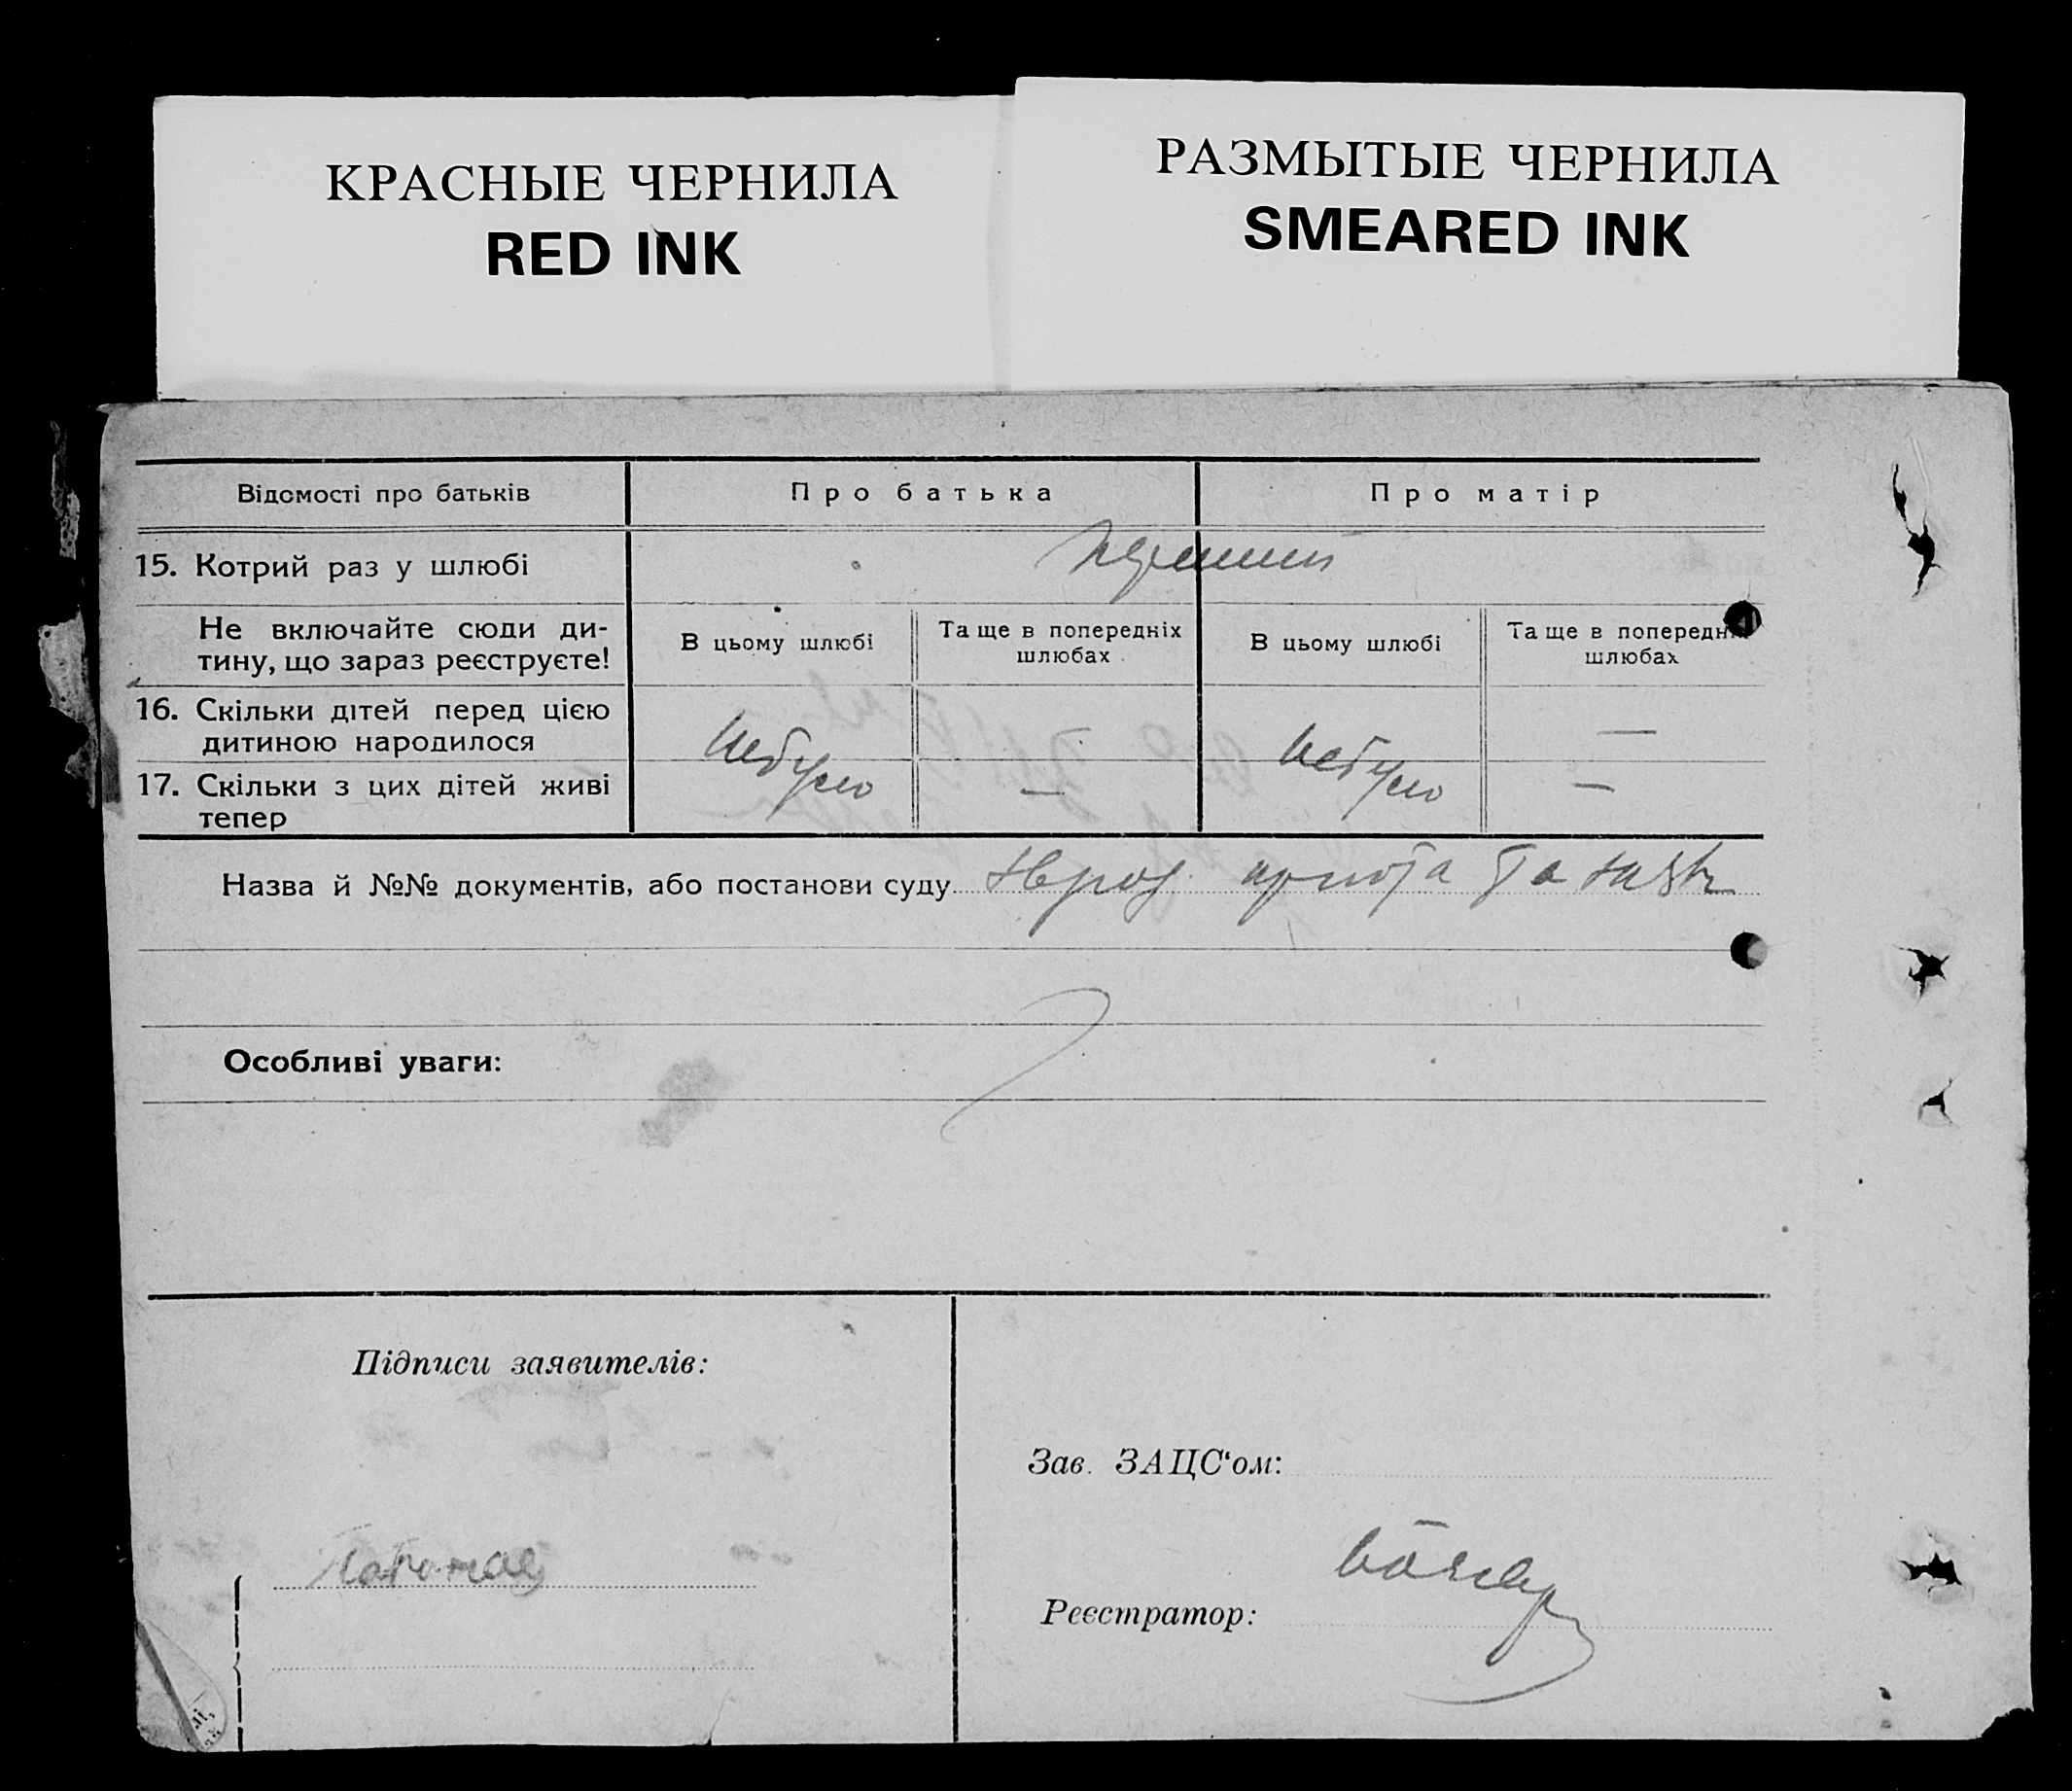 КРАСНЫЕ ЧЕРНИЛА
RED INK
РАЗМЫТЫЕ ЧЕРНИЛА
SMEARED INK
Відомості про батьків
Про батька
Про матір
15. Котрий раз у шлюбі
перший
Не включайте сюди ди-
тину, що зараз реєструєте!
В цьому шлюбі
Та ще в попередніх
шлюбах
В цьому шлюбі
Та ще в попередн
шлюбах
16. Скільки дітей перед цією
дитиною народилося
—
17. Скільки з цих дітей живі
тепер
небуло
—
небуло
—
Назва й №№ документів, або постанови суду
та
Особливі уваги:
Підписи заявителів:
Зав. ЗАЦС‘ом:
Реєстратор: